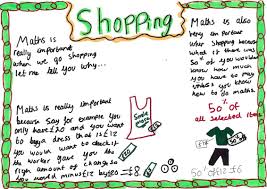 Shopping
Maths is
really important
when we go shopping
let me tell you why...
Maths is really important
because say for example you
only have £20 and you want
to buy a dress that is £12
you would want to check if
the worker gave you the
right amount of change so
you would minus £12 by £20 = £8
Maths is also
very important
when shopping because
what if there was
50% off you would
know how much
you have to pay
unless you
know how to do maths
50% off
all selected items
50% of £12 £6